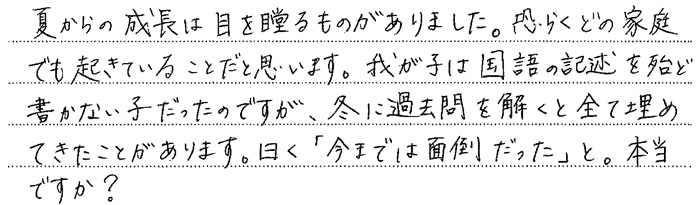 夏からの成長は目を瞠るものがありました。恐らくどの家庭
でも起きていることだと思います。我が子は国語の記述を殆ど
書かない子だったのですが、冬に過去問を解くと全て埋め
てきたことがあります。曰く「今までは面倒だった」と。本当
ですか？